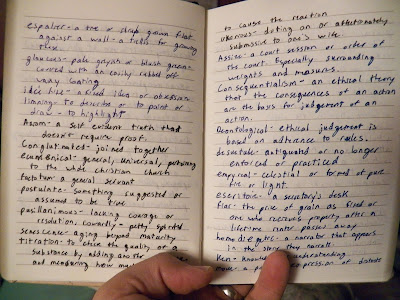 espalier - a tree or shrub grown flat
against a wall - a trellis for growing
these.
glaucous - pale grayish or bluish green -
covered with an easily rubbed off
waxy coating
idée fixe - a fixed idea or obsession
limning - to describe or to point or
draw - to highlight
Axiom - a self evident truth that
doesn't require proof.
Conglutinated - joined together
ecumenical - general, universal, pertaining
to the whole christian church
factotum - a general servant
postulate - Something suggested or
assumed to be true
pusillanimous - lacking courage or
resolution, cowardly - petty spirited
senescence - aging beyond maturity
titration - to the quality of a
substance by adding
and measuring how
to cause the reaction
uxorious - doting on or affectionately
submissive to one's wife
Assize - a court session or order of
the court. Especially surrounding
weights and measures.
Consequentialism - an ethical theory
that the consequences of an action
are the basis for judgement of an
action.
Deontological - ethical judgement is
based on adherence to rules.
desuetude - antiquated or no longer
enforced or practiced
empyreal - celestial or formed of pure
fire or light.
escritoire - a secretary's desk
fiar - the price of grain as fixed or
one who receives property after a
lifetime renter passes away
homodiegetic - a narrator that appears
in the story they narrate
Ken - understanding
a expression of distaste